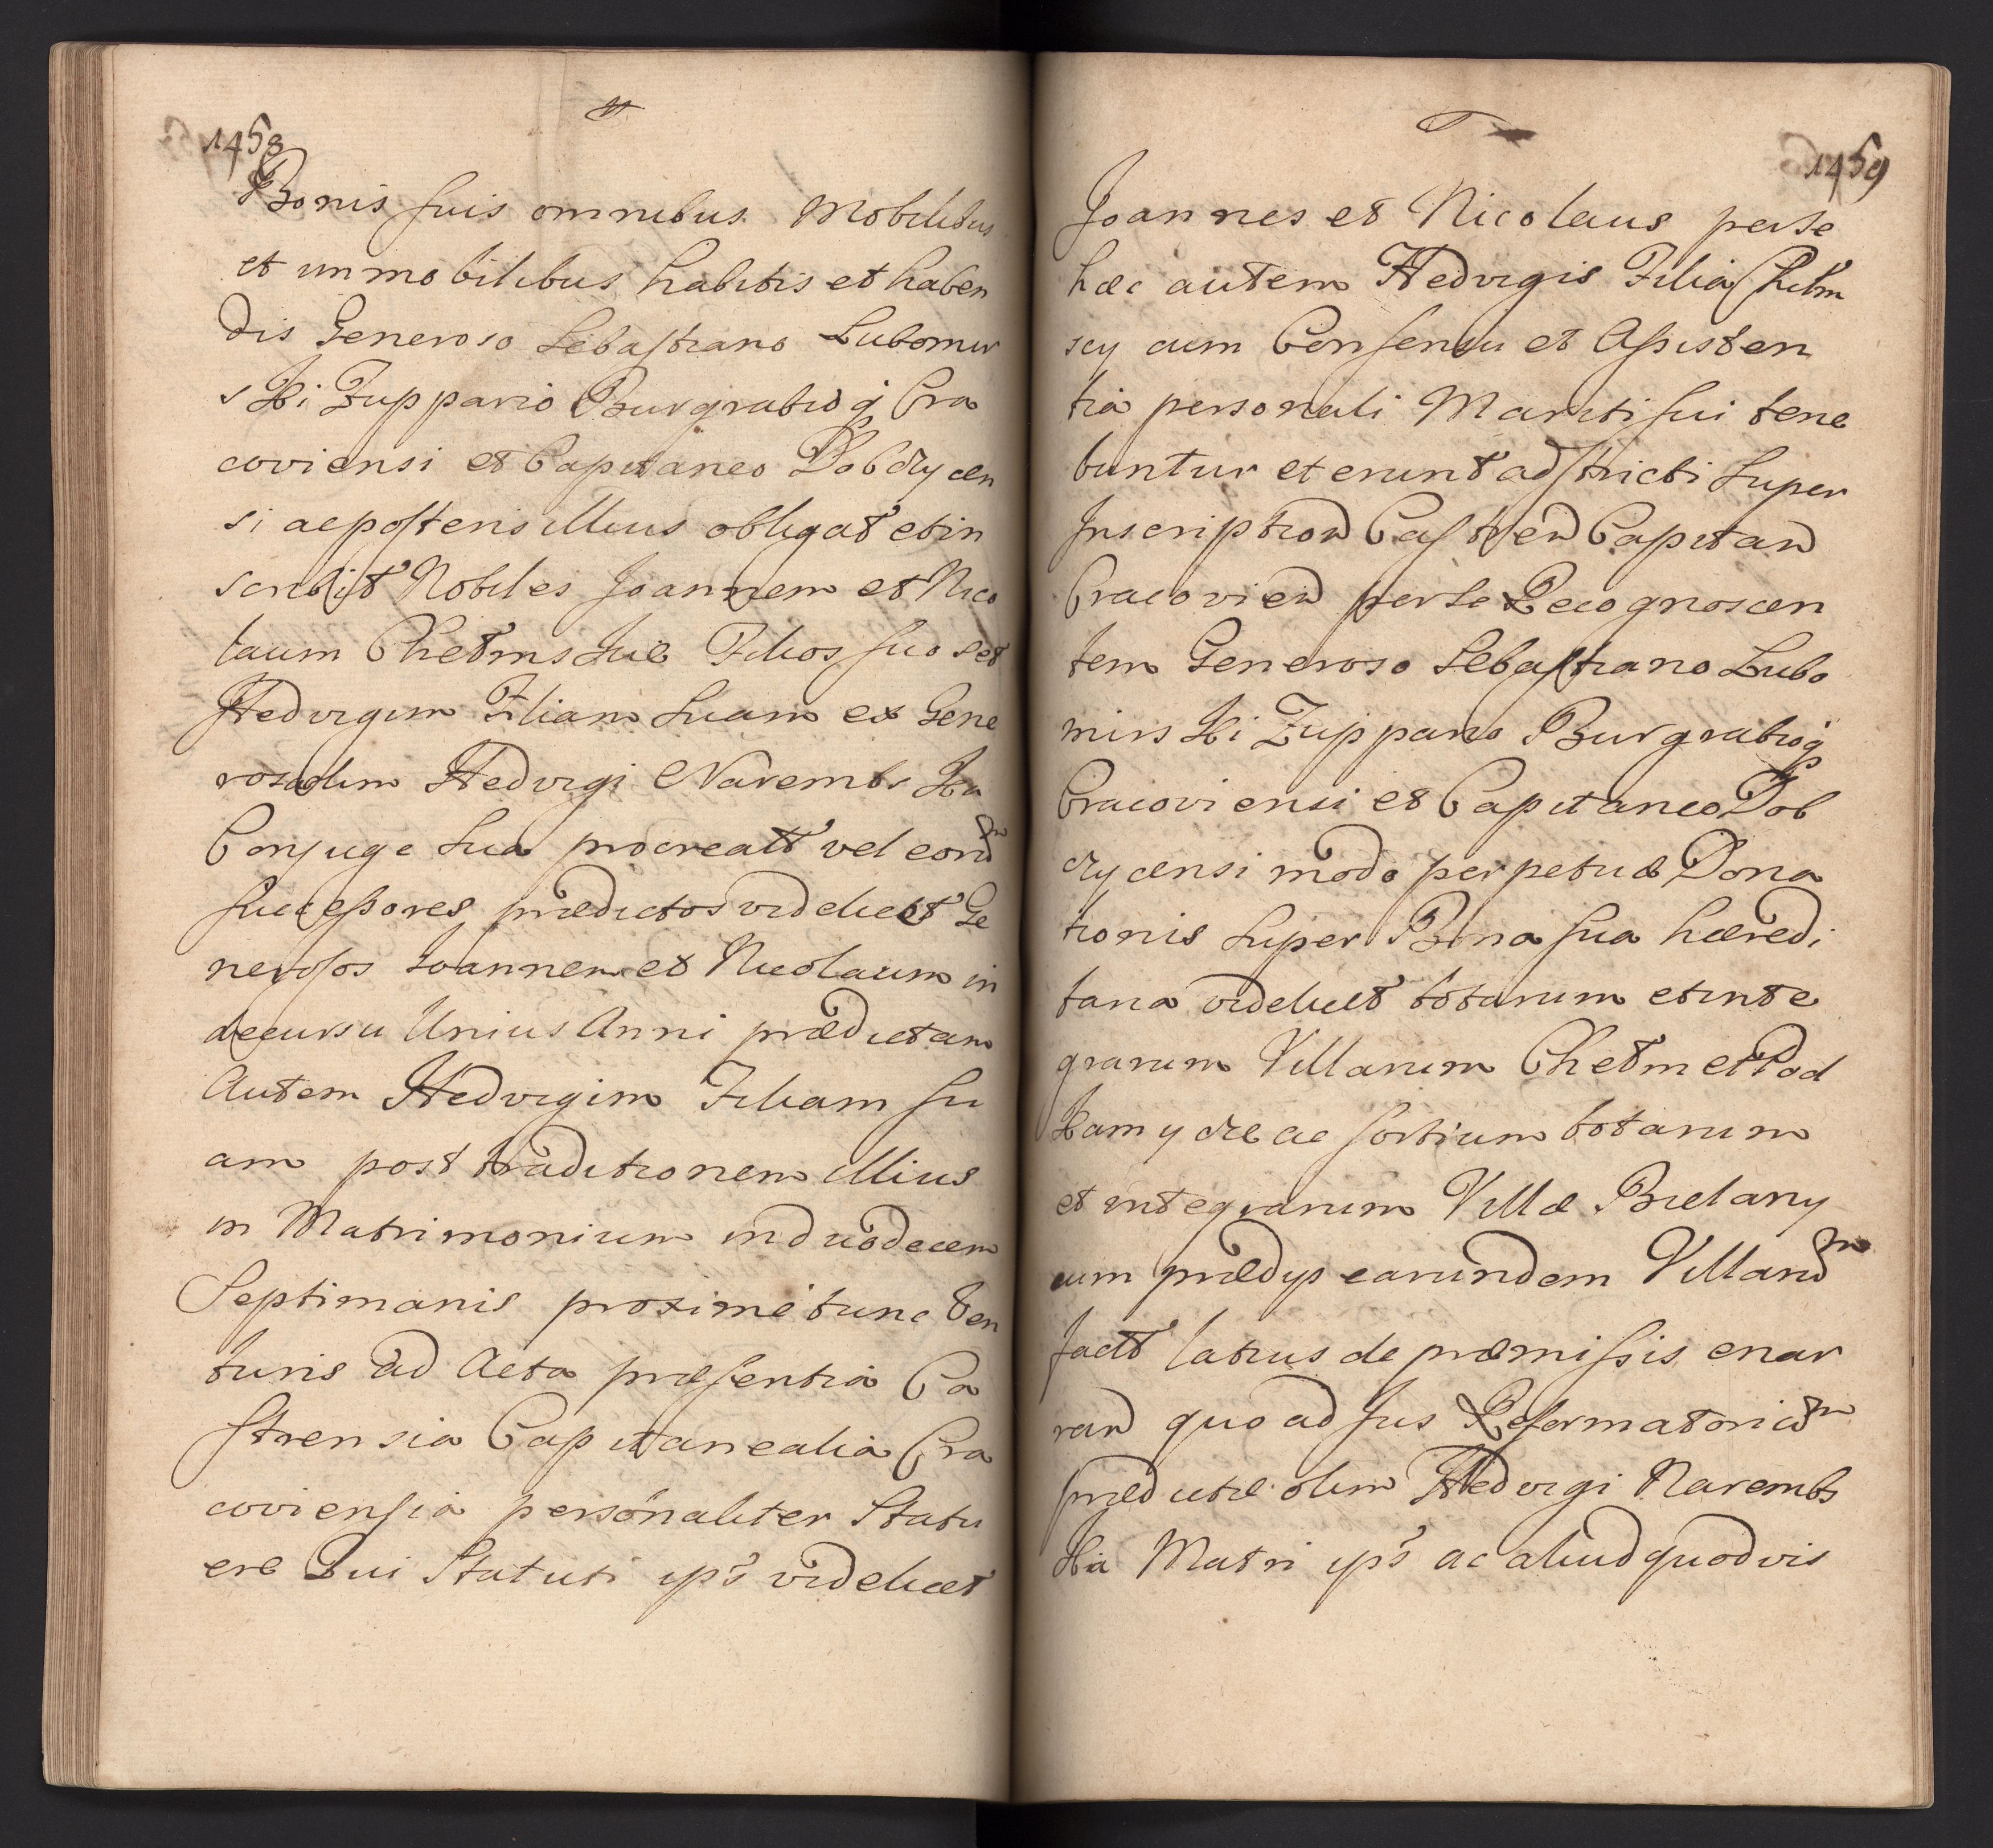 1458
Bonis suis omnibus Mobilibus
et immobilibus habitis et haben
dis Generoso Sebastiano Lubomir
ski Zuppario Burgrabioq Cra
coviensi et Capitaneo Dobczycen
si ac posteris illius obligat et in
scribit Nobiles Joannem et Nico
laum Chełmskie Filios suos et
Hedvigim Filiam suam ex Gene
rosa olim Hedvigi Navembr ska
Conjuge sua procreatt vel eorum
successores prædictos videlicet Ge
nerosos Joannem et Nicolaum in
decursu Unius Anni prædictam
Autem Hedvigim Filiam su
am post traditionem illius
in Matrimonium induodecem
Septimanis proxime tunc ven
turis ad Acta præsentia Ca
strensia Capitanealia Cra
coviensia personaliter Statu
ere Qui Statuti ips videlicet
1459
Joannes et Nicolaus per se
hæc autem Hedvigis Filia Chełm
scy cum Consensu et Assisten
tia personali Mariti sui tene
buntur et erunt adstricti super
Inscription Castren Capitan
Cracovien per se Recognoscen
tem Generoso Sebastiano Lubo
mirski Zuppario Burgrabioq
Cracoviensi et Capitaneo Dob
czycensi modo perpetuæ Dona
tionis super Bona sua hæredi
taria videlicet totarum et inte
grarum Villarum Chełm et Pod
kamycze ac sortium totarum
et integrarum Villæ Bielany
cum prædys earundem Villarum
jactt latius de præmissis enar
ran quo ad Jus Reformatorium
prædictæ olim Hedvigi Narembs
kia Matri ips ac aliud quodvis